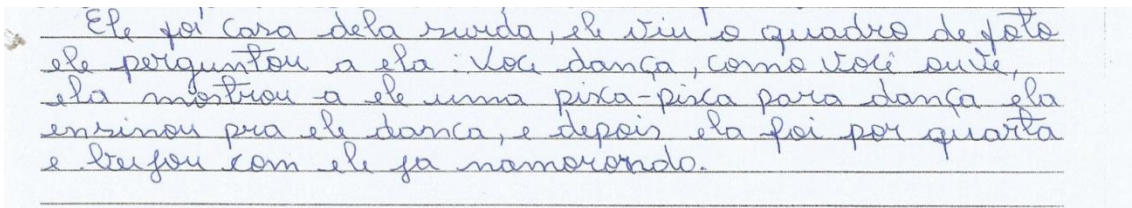 Ele foi casa dela surda, ele viu o quadro de foto
ele perguntou a ela: Você dança, como você ouve,
ela mostrou a ele uma pisca-pisca para dança ela
ensinou pra ele danca, e depois ela foi por quarta
e beijou com ele ja namorondo.